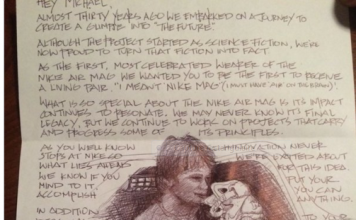 HEY MICHAEL,
ALMOST THIRTY YEARS AGO WE EMBARKED ON A JOURNEY TO
CREATE A GLIMPSE INTO "THE FUTURE".
ALTHOUGH THE PROJECT STARTED AS SCIENCE FICTION, WE'RE
NOW PROUD TO TURN THAT FICTION INTO FACT.
AS THE FIRST, MOST CELEBRATED WEARER OF THE
NIKE AIR MAG WE WANTED YOU TO BE THE FIRST TO RECEIVE
A LIVING PAIR. "I MEANT NIKE MAG"
WHAT IS SO SPECIAL ABOUT THE NIKE AIR MAG IS ITS IMPACT
CONTINUES TO RESONATE. WE MAY NEVER KNOW ITS FINAL
LEGACY, BUT WE CONTINUE TO WORK ON PROJECTS THAT CARRY
AND PROGRESS SOME OF ITS PRINCIPLES.
AS YOU WELL KNOW INNOVATION NEVER
STOPS AT NIKE SO WE'RE EXCITED ABOUT
WHAT LIES AHEAD RE THIS IDEA.
WE KNOW IF YOU PUT YOUR
MIND TO IT, YOU CAN
ACCOMPLISH ANYTHING.
IN ADDITION TO YOUR